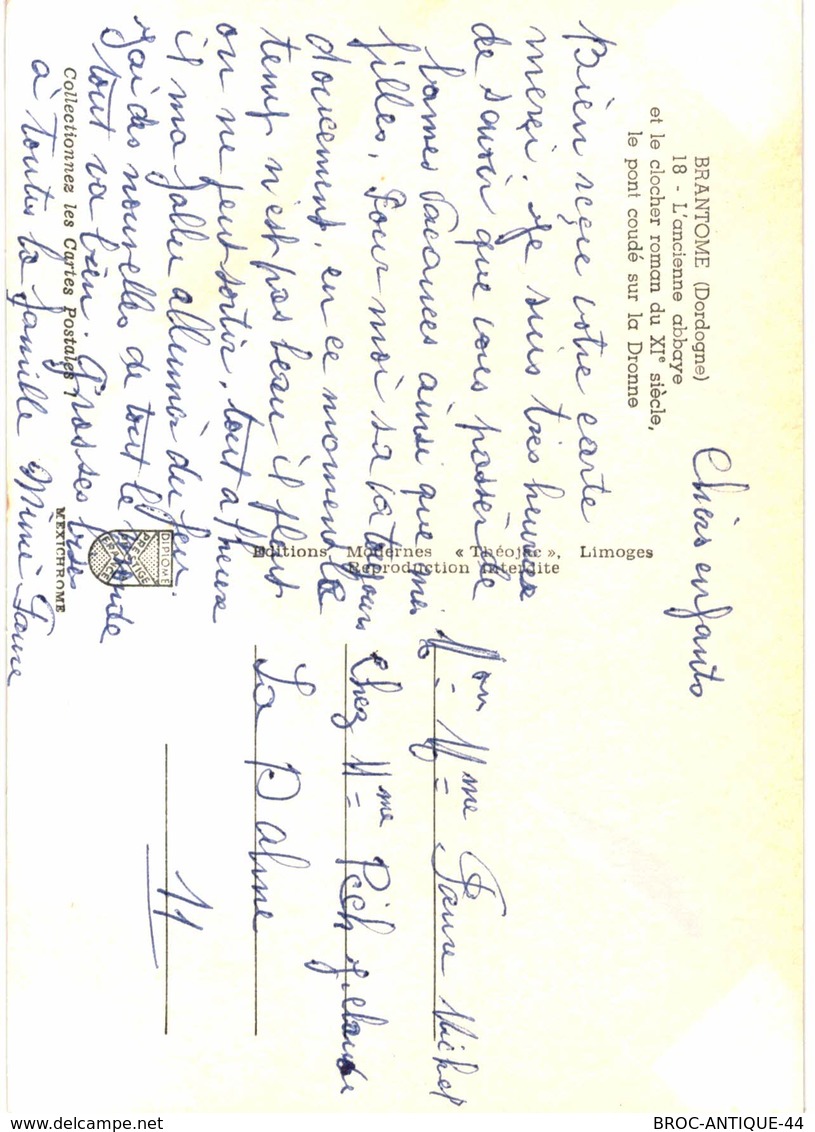 BRANTOME (Dordogne)
18 - L'ancienne abbaye
et le clocher roman du XIe siècle,
le pont coudé sur la Dronne
Chers enfants
Bien reçue votre carte
merci. Je suis très heureuse
de savoir que vous passer de
bonnes vacances ainsi que mes
filles, Pour moi sa va toujours
doucement, en ce moment le
temp n'est pas beau il pleut
on ne peut sortir, tout a l'heure
il ma fallu allumer du feu
j'ai des nouvelles de tout le monde
tout va bien. Grosses bises
à toutes la famille Mémé Faure
Collectionnez les Cartes Postales !
MEXICHROME
DIPLOME
PRESTIGE
FRANCE
Editions Modernes « Théojac », Limoges
Reproduction interdite
Mme Faure Michel
Chez Mme Pech
La Palme
11
BROC-ANTIQUE-44